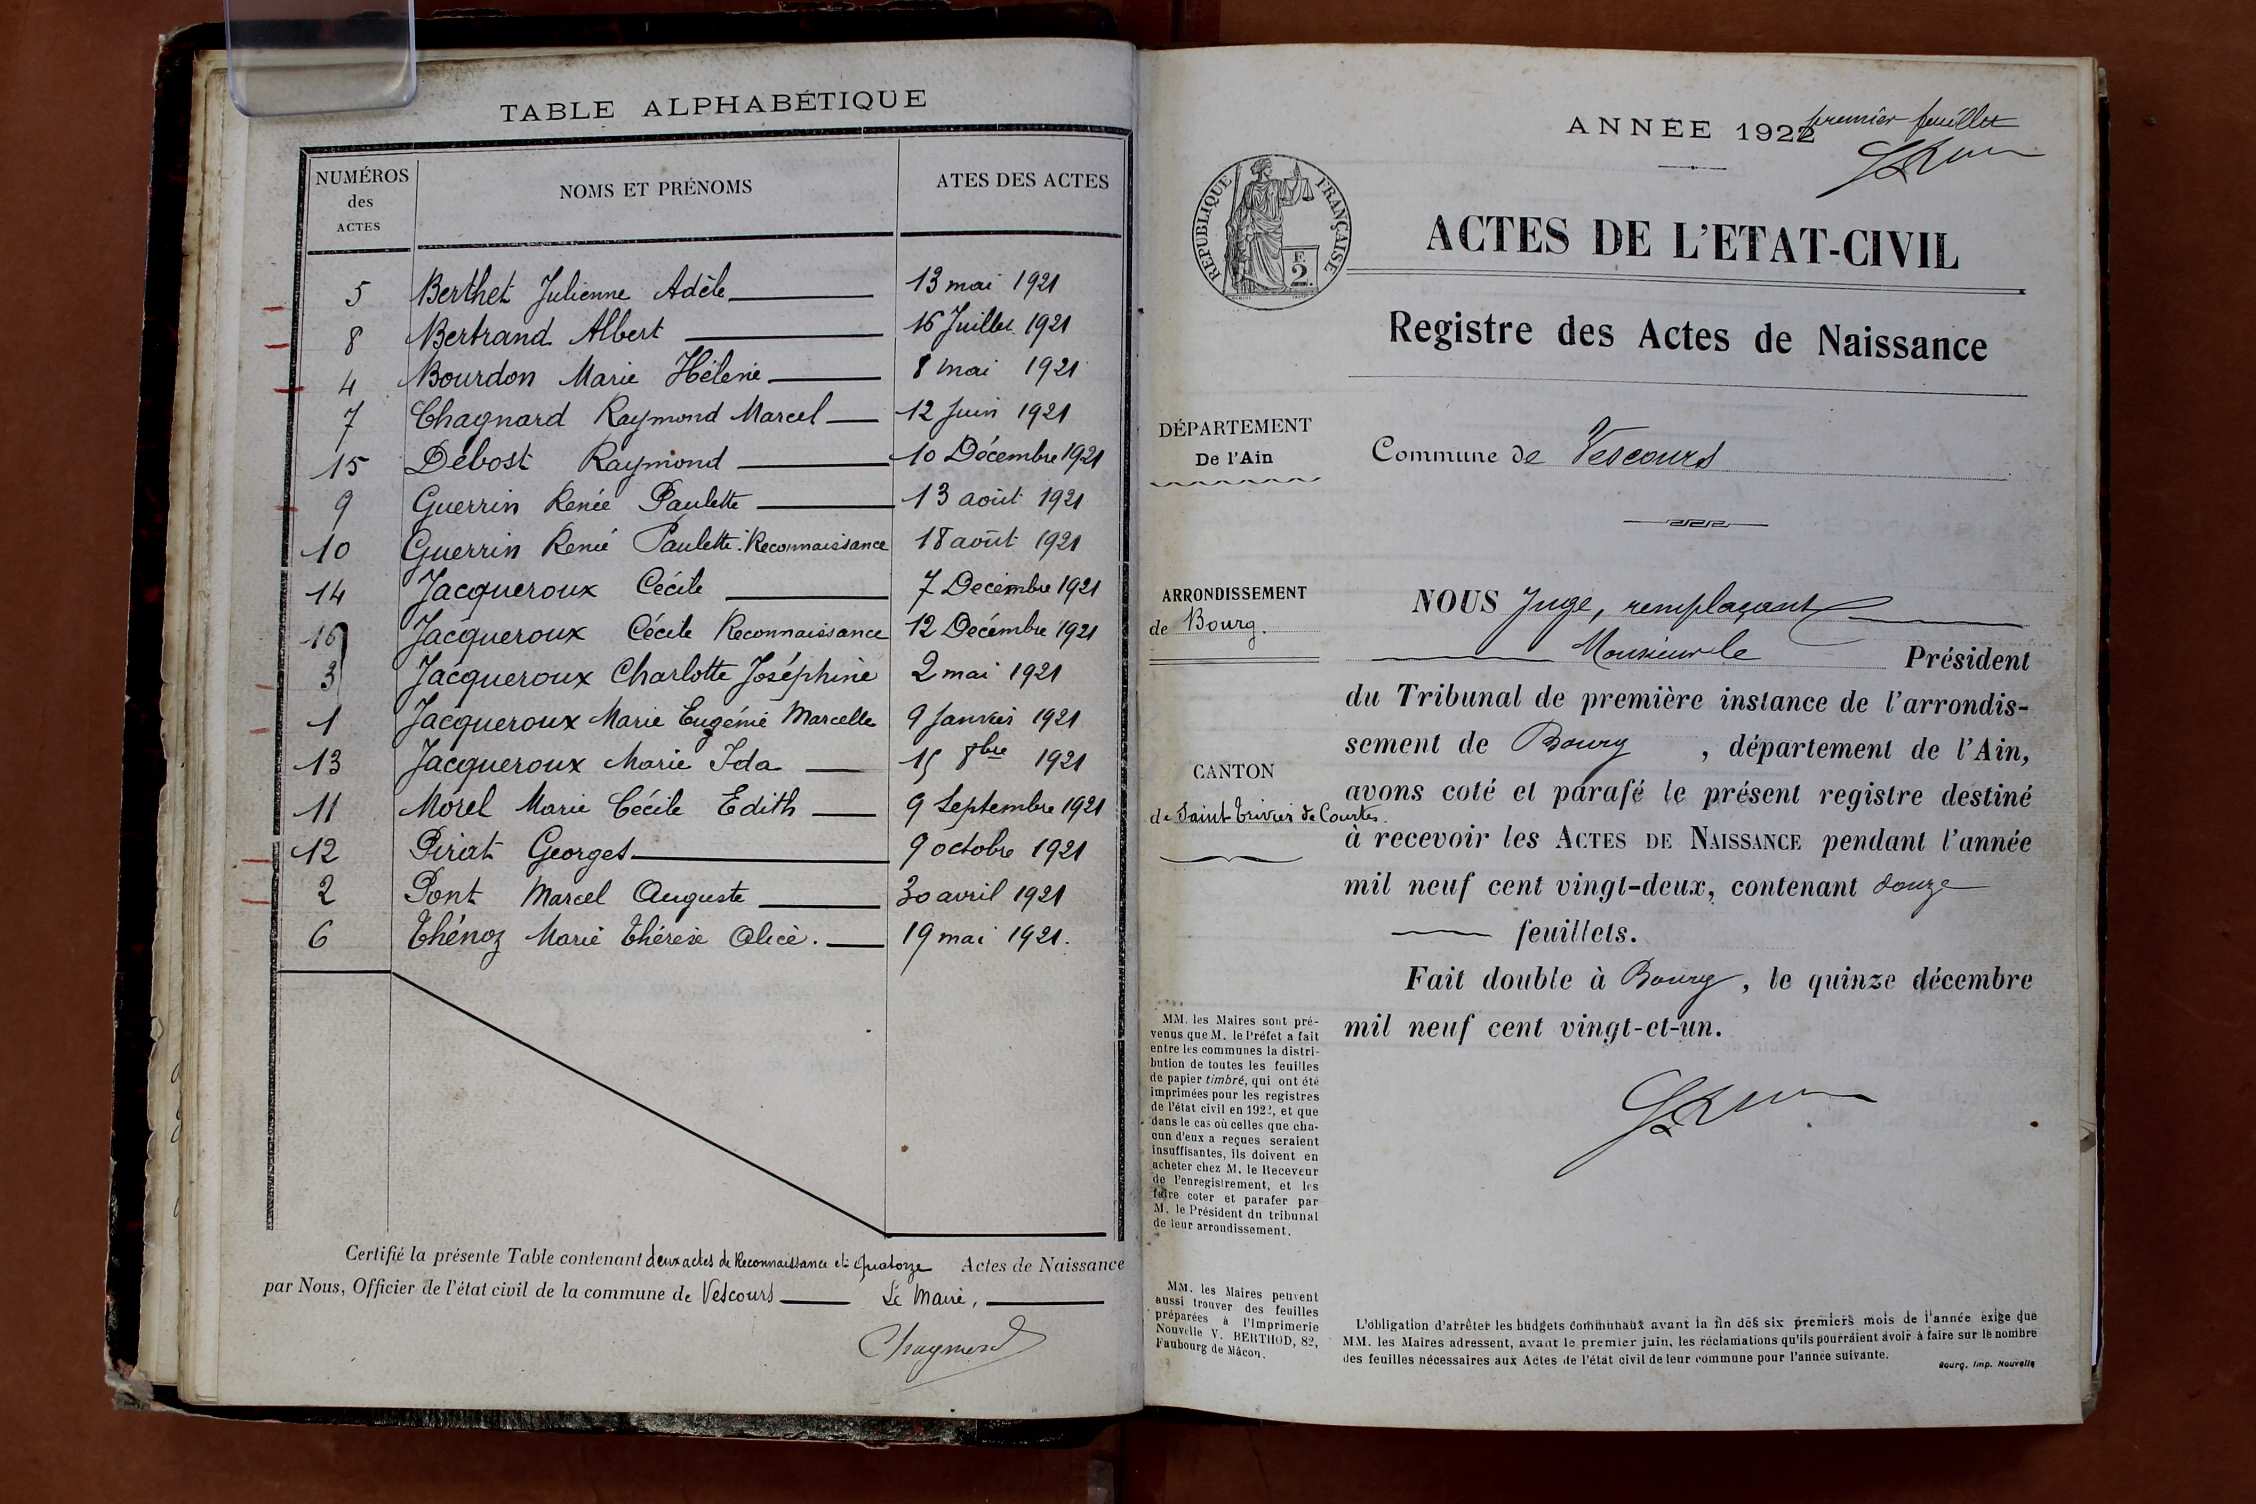 TABLE ALPHABÉTIQUE
NUMÉROS des ACTES NOMS ET PRÉNOMS ATES DES ACTES
5 Berthet Julienne Adèle 13 mai 1921
8 Bertrand Albert 16 Juillet 1921
4 Bourdon Marie Hélène 8 mai 1921
7 Chagnard Raymond Marcel 12 Juin 1921
15 Debost Raymond 10 Décembre 1921
9 Guerrin Renée Paulette 13 août 1921
10 Guerrin Renée Paulette. Reconnaissance 18 août 1921
14 Jacqueroux Cécile 7 Décembre 1921
16 Jacqueroux Cécile Reconnaissance 12 Décembre 1921
3 Jacqueroux Charlotte Joséphine 2 mai 1921
1 Jacqueroux Marie Eugénie Marcelle 9 Janvier 1921
13 Jacqueroux Marie Ida 15 8bre 1921
11 Morel Marie Cécile Edith 9 Septembre 1921
12 Piriat Georges 9 octobre 1921
2 Pont Marcel Auguste 30 avril 1921
6 Thénoz Marie Thérèse Alice. 19 mai 1921.
Certifié la présente Table contenant deux actes de Reconnaissance et quatorze Actes de Naissance
par Nous, Officier de l'état civil de la commune de Vescours Le Maire,
Chagnard
premier feuillet
ANNÉE 1922
RÉPUBLIQUE FRANÇAISE
F.
2
ACTES DE L'ETAT-CIVIL
Registre des Actes de Naissance
DÉPARTEMENT
De l'Ain
Commune de Vescours
ARRONDISSEMENT
de Bourg.
CANTON
de Saint Trivier de Courtes.
NOUS Juge, remplaçant
Monsieur le Président
du Tribunal de première instance de l'arrondis-
sement de Bourg , département de l'Ain,
avons coté et parafé le présent registre destiné
à recevoir les ACTES DE NAISSANCE pendant l'année
mil neuf cent vingt-deux, contenant douze
feuillets.
Fait double à Bourg, le quinze décembre
mil neuf cent vingt-et-un.
MM. les Maires sont pré-
venus que M. le Préfet a fait
entre les communes la distri-
bution de toutes les feuilles
de papier timbré, qui ont été
imprimées pour les registres
de l'état civil en 1922, et que
dans le cas où celles que cha-
cun d'eux a reçues seraient
insuffisantes, ils doivent en
acheter chez M. le Receveur
de l'enregistrement, et les
faire coter et parafer par
M. le Président du tribunal
de leur arrondissement.
MM. les Maires peuvent
aussi trouver des feuilles
préparées à l'Imprimerie
Nouvelle V. BERTHOD, 82,
Faubourg de Mâcon.
L'obligation d'arrêter les budgets communaux avant la fin des six premiers mois de l'année exige que
MM. les Maires adressent, avant le premier juin, les réclamations qu'ils pourraient avoir à faire sur le nombre
des feuilles nécessaires aux Actes de l'état civil de leur commune pour l'année suivante.
Bourg, Imp. Nouvelle